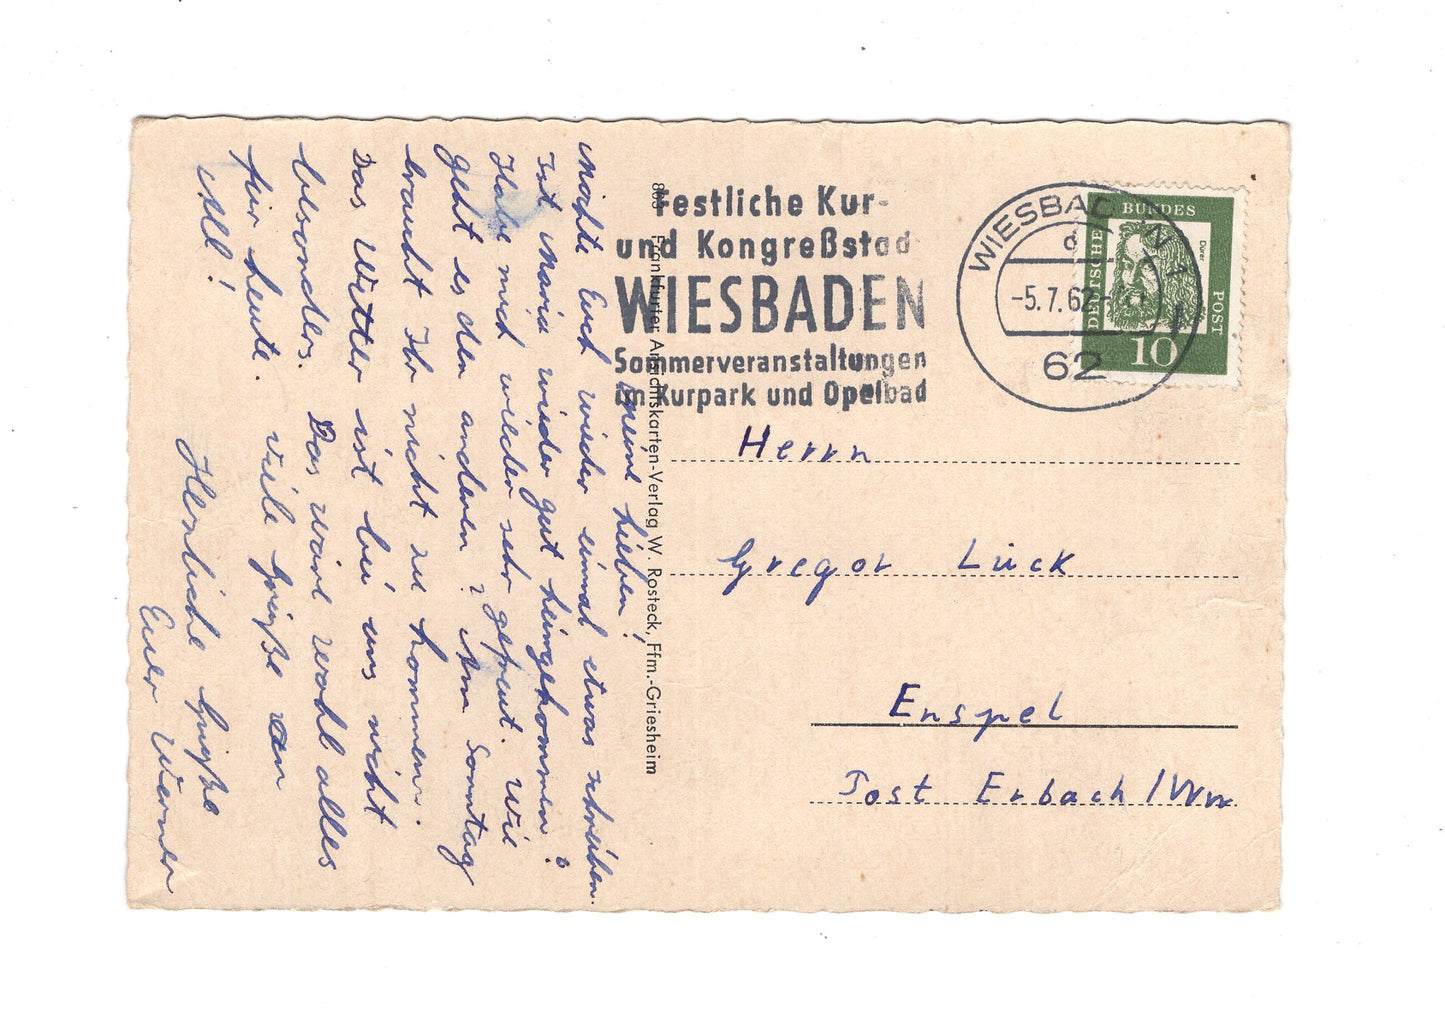 Meine Lieben!
Möchte Euch wieder einmal etwas schreiben.
Ist Maria wieder gut heimgekommen?
Habe mich wieder sehr gefreut. Wie
geht es den anderen? Am Sonntag
braucht Ihr nicht zu kommen.
Das Wetter ist bei uns nicht
besonders. Das wäre wohl alles
für heute. Viele Grüße an
All!
Herzliche Grüße
Euer Werner
803 Frankfurter Ansichtskarten-Verlag W. Rosteck, Ffm.-Griesheim
Festliche Kur-
und Kongreßstad
WIESBADEN
Sommerveranstaltungen
im Kurpark und Opelbad
WIESBADEN 1
d
-5.7.62-
62
DEUTSCHE
BUNDES
POST
Dürer
10
Herrn
Gregor Lück
Enspel
Post Erbach/Ww.